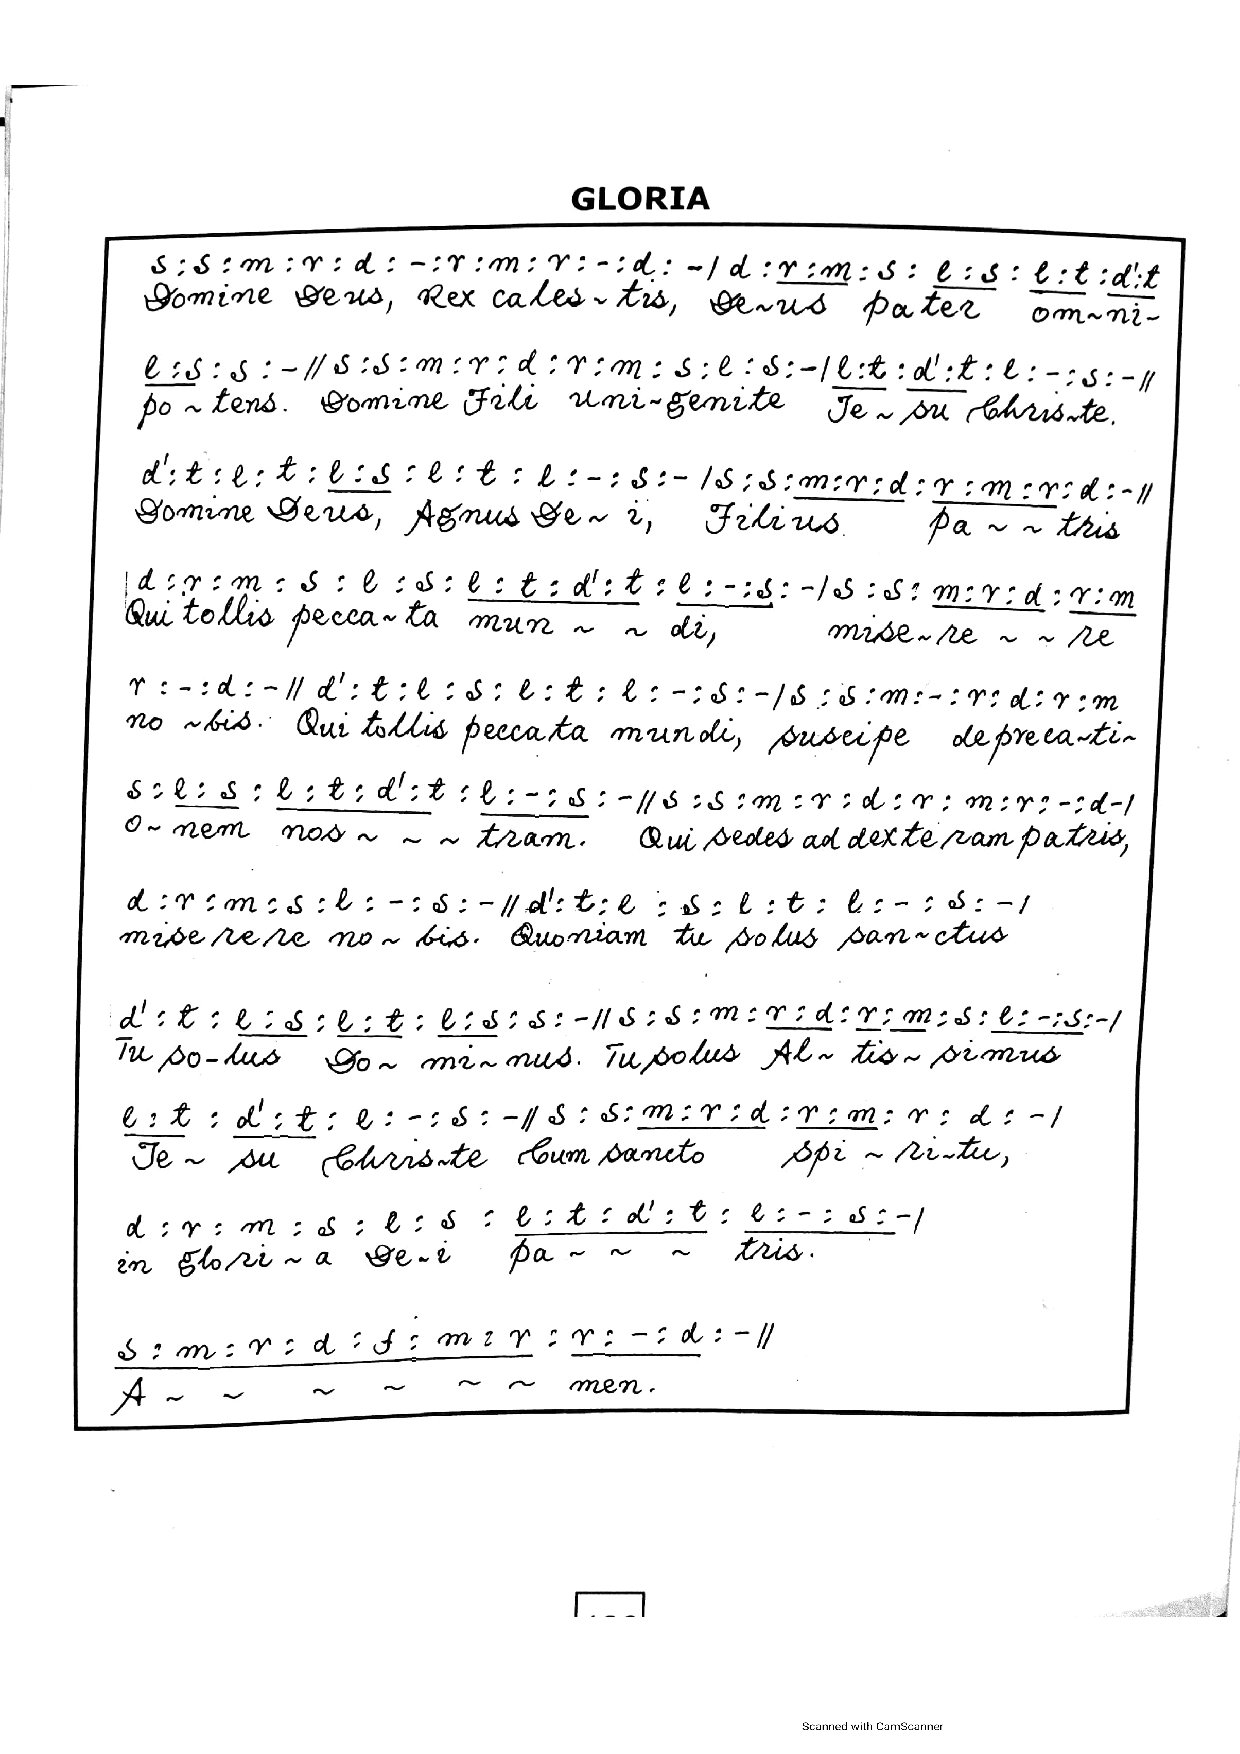 GLORIA
s : s : m : r : d : - : r : m : r : - : d : - / d : r : m : s : l : s : l : t : d' : t
Domine Deus, Rex cales ~ tis, De ~ us pater om ~ ni -
l : s : s : - // s : s : m : r : d : r : m : s : l : s : - / l : t : d' : t : l : - : s : - //
po ~ tens. Domine Fili uni - genite Je ~ su Chris ~ te.
d' : t : l : t : l : s : l : t : l : - : s : - / s : s : m : r : d : r : m : r : d : - //
Domine Deus, Agnus De ~ i, Filius. pa ~ ~ tris
d : r : m : s : l : s : l : t : d' : t : l : - : s : - / s : s : m : r : d : r : m
Qui tollis pecca ~ ta mun ~ ~ di, mise ~ re ~ ~ re
r : - : d : - // d' : t : l : s : l : t : l : - : s : - / s : s : m : - : r : d : r : m
no ~ bis. Qui tollis peccata mundi, suscipe depreca ~ ti ~
s : l : s : l : t : d' : t : l : - : s : - // s : s : m : r : d : r : m : r : - : d - /
o ~ nem nos ~ ~ ~ tram. Qui sedes ad dexteram patris,
d : r : m : s : l : - : s : - // d' : t : l : s : l : t : l : - : s : - /
miserere no ~ bis. Quoniam tu solus san ~ ctus
d' : t : l : s : l : t : l : s : s : - // s : s : m : r : d : r : m : s : l : - : s : - /
Tu so - lus Do ~ mi ~ nus. Tu solus Al ~ tis ~ simus
l : t : d' : t : l : - : s : - // s : s : m : r : d : r : m : r : d : - /
Je ~ su Chris ~ te Cum sancto spi ~ ri ~ tu,
d : r : m : s : l : s : l : t : d' : t : l : - : s : - /
in glori ~ a De - i pa ~ ~ ~ tris.
s : m : r : d : f : m : r : r : - : d : - //
A ~ ~ ~ ~ ~ ~ men.
Scanned with CamScanner